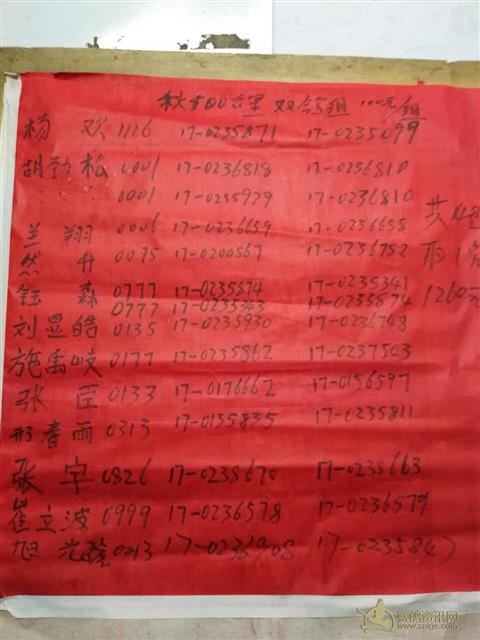 秋季100公里 双鸽组 100元/组
杨 欢 1116 17-0235871 17-0235099
胡劲松 0001 17-0236818 17-0236810
0001 17-0235929 17-0236810
兰 翔 0006 17-0236659 17-0236658
然 升 0075 17-0200567 17-0236752
钰 森 0777 17-0235674 17-0235341
0777 17-0235343 17-0235874
刘显皓 0135 17-0235930 17-0236748
施禹岐 0177 17-0235862 17-0237503
张 臣 0133 17-0176662 17-0156597
邢春雨 0313 17-0135835 17-0235811
张 宇 0826 17-0235670 17-0235663
崔立波 0999 17-0236578 17-0236579
旭 0213 17-0236908 17-0235847
共14组
取1名
1260元
赛鸽资讯网
www.saige.com